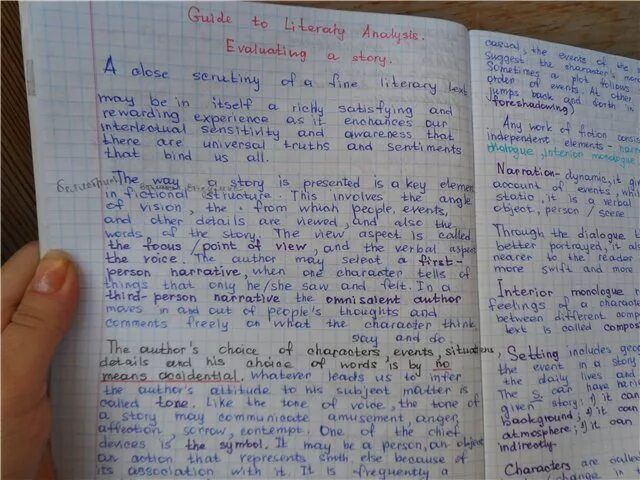 Guide to Literary Analysis.
Evaluating a story.
A close scrutiny of a fine literary text
may be in itself a richly satisfying and
rewarding experience as it enchances our
intellectual sensitivity and awareness that
there are universal truths and sentiments
that bind us all.
The way a story is presented is a key elemen
in fictional structure. This involves the angle
of vision, the • from which people, events,
and other details are viewed, and also the
words of the story. The view aspect is called
the focus/point of view, and the verbal aspec
the voice. The author may select a first-
person narrative, when one character tells of
things that only he/she saw and felt. In a
third-person narrative the omnisalent author
moves in and out of people's thoughts and
comments freely on what the character think,
say and do.
The author's choice of characters, events, situations,
details and his choice of words is by no
means accidental. Whatever leads us to infer
the author's attitude to his subject matter is
called tone. Like the tone of voice, the tone of
a story may communicate amusement, anger,
affection, sorrow, contempt. One of the chief
devices is the symbol. It may be a person, an object
an action that represents smth. else because of
its association with it. It is frequently a
casual, the events of the
suggest the character's
Sometimes a plot follows
order of events. At other
jumps back and forth in
foreshadowing)
Any work of fiction consis
independent elements - narr
dialogue, interior monologue
Narration - dynamic, it gi
account of events, whil
static, it is a verbal
object, person / scene
Through the dialogue t
better portrayed, it a
nearer to the reader
more swift and more
Interior monologue r
feelings of a charact
between different comp
text is called compos
Setting includes geog
the event in a story
the daily lives and
The S. can have
given story: 1) it can
background; 2) it can
atmosphere; 3) it can
indirectly.
Characters are called